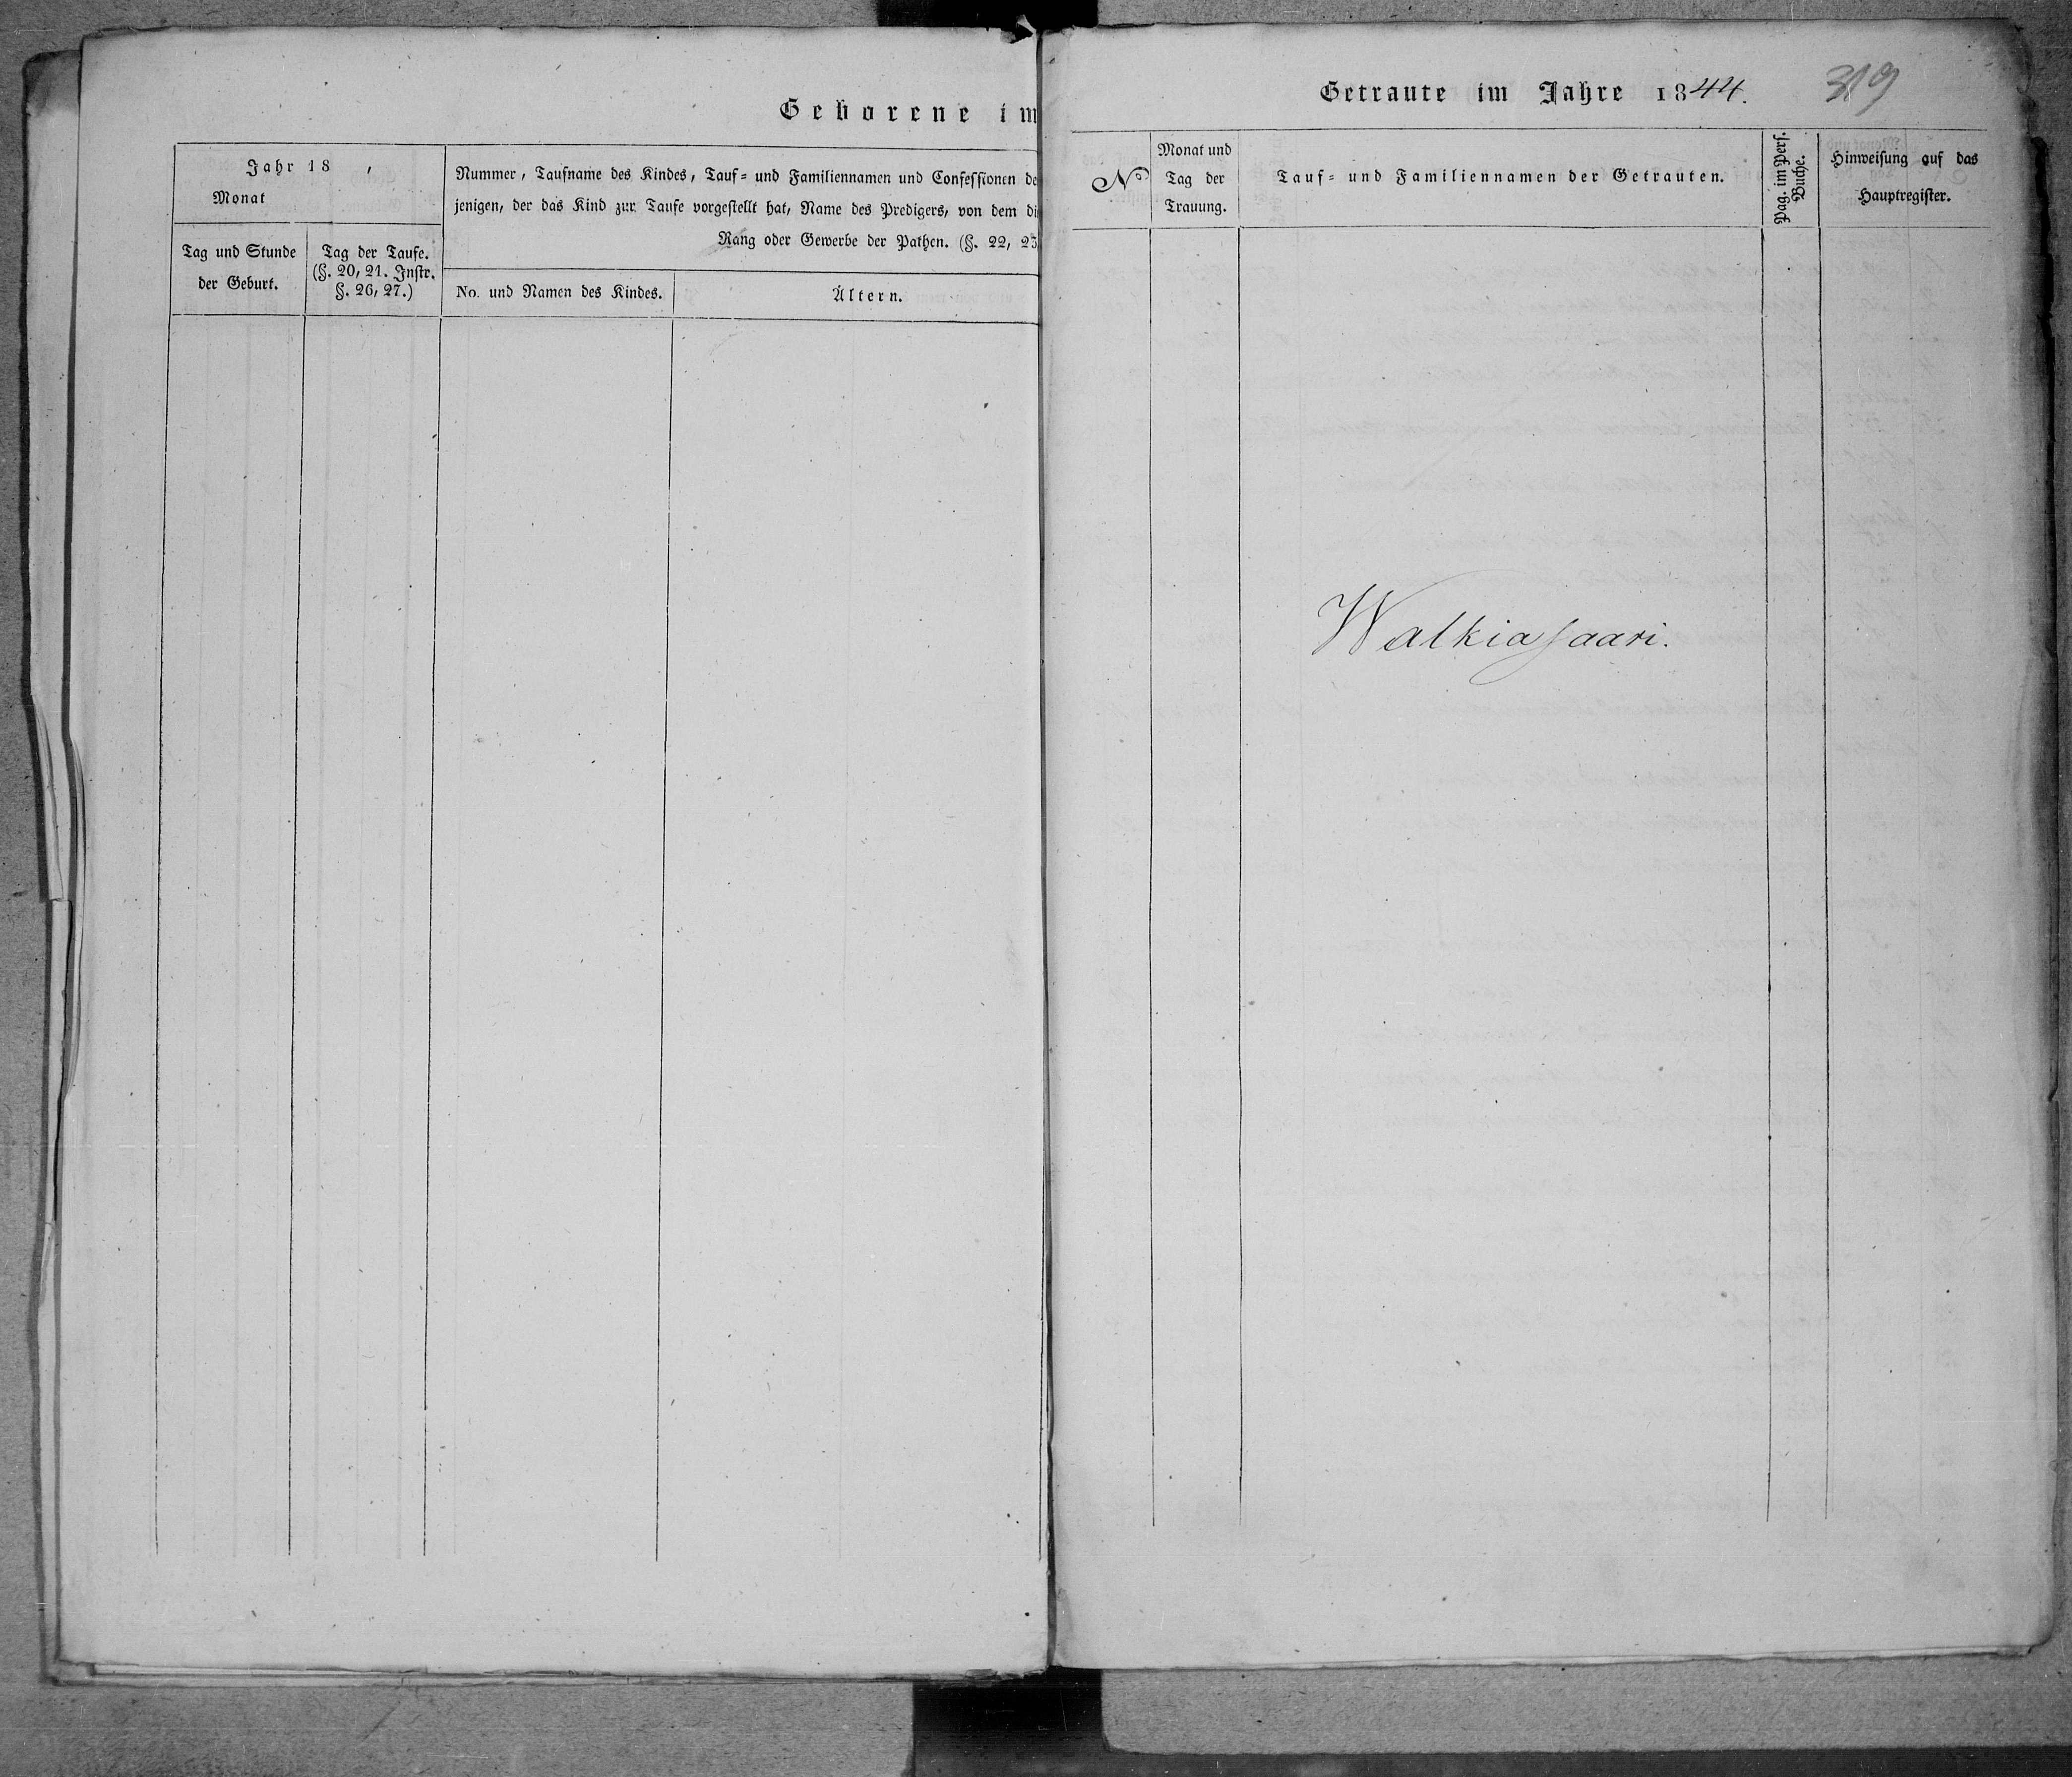 Geborene im
Jahr 18 ,
Monat
Tag und Stunde
der Geburt.
Tag der Taufe.
(§. 20, 21. Instr.
§. 26, 27.)
Nummer, Taufname des Kindes, Tauf- und Familiennamen und Confessionen de
jenigen, der das Kind zur Taufe vorgestellt hat, Name des Predigers, von dem di
Rang oder Gewerbe der Pathen. (§. 22, 23
No. und Namen des Kindes.
Ältern.
Getraute im Jahre 1844.
319
No
Monat und
Tag der
Trauung.
Tauf- und Familiennamen der Getrauten.
Pag. im Pers.
Buche.
Hinweisung auf das
Hauptregister.
Walkiasaari.